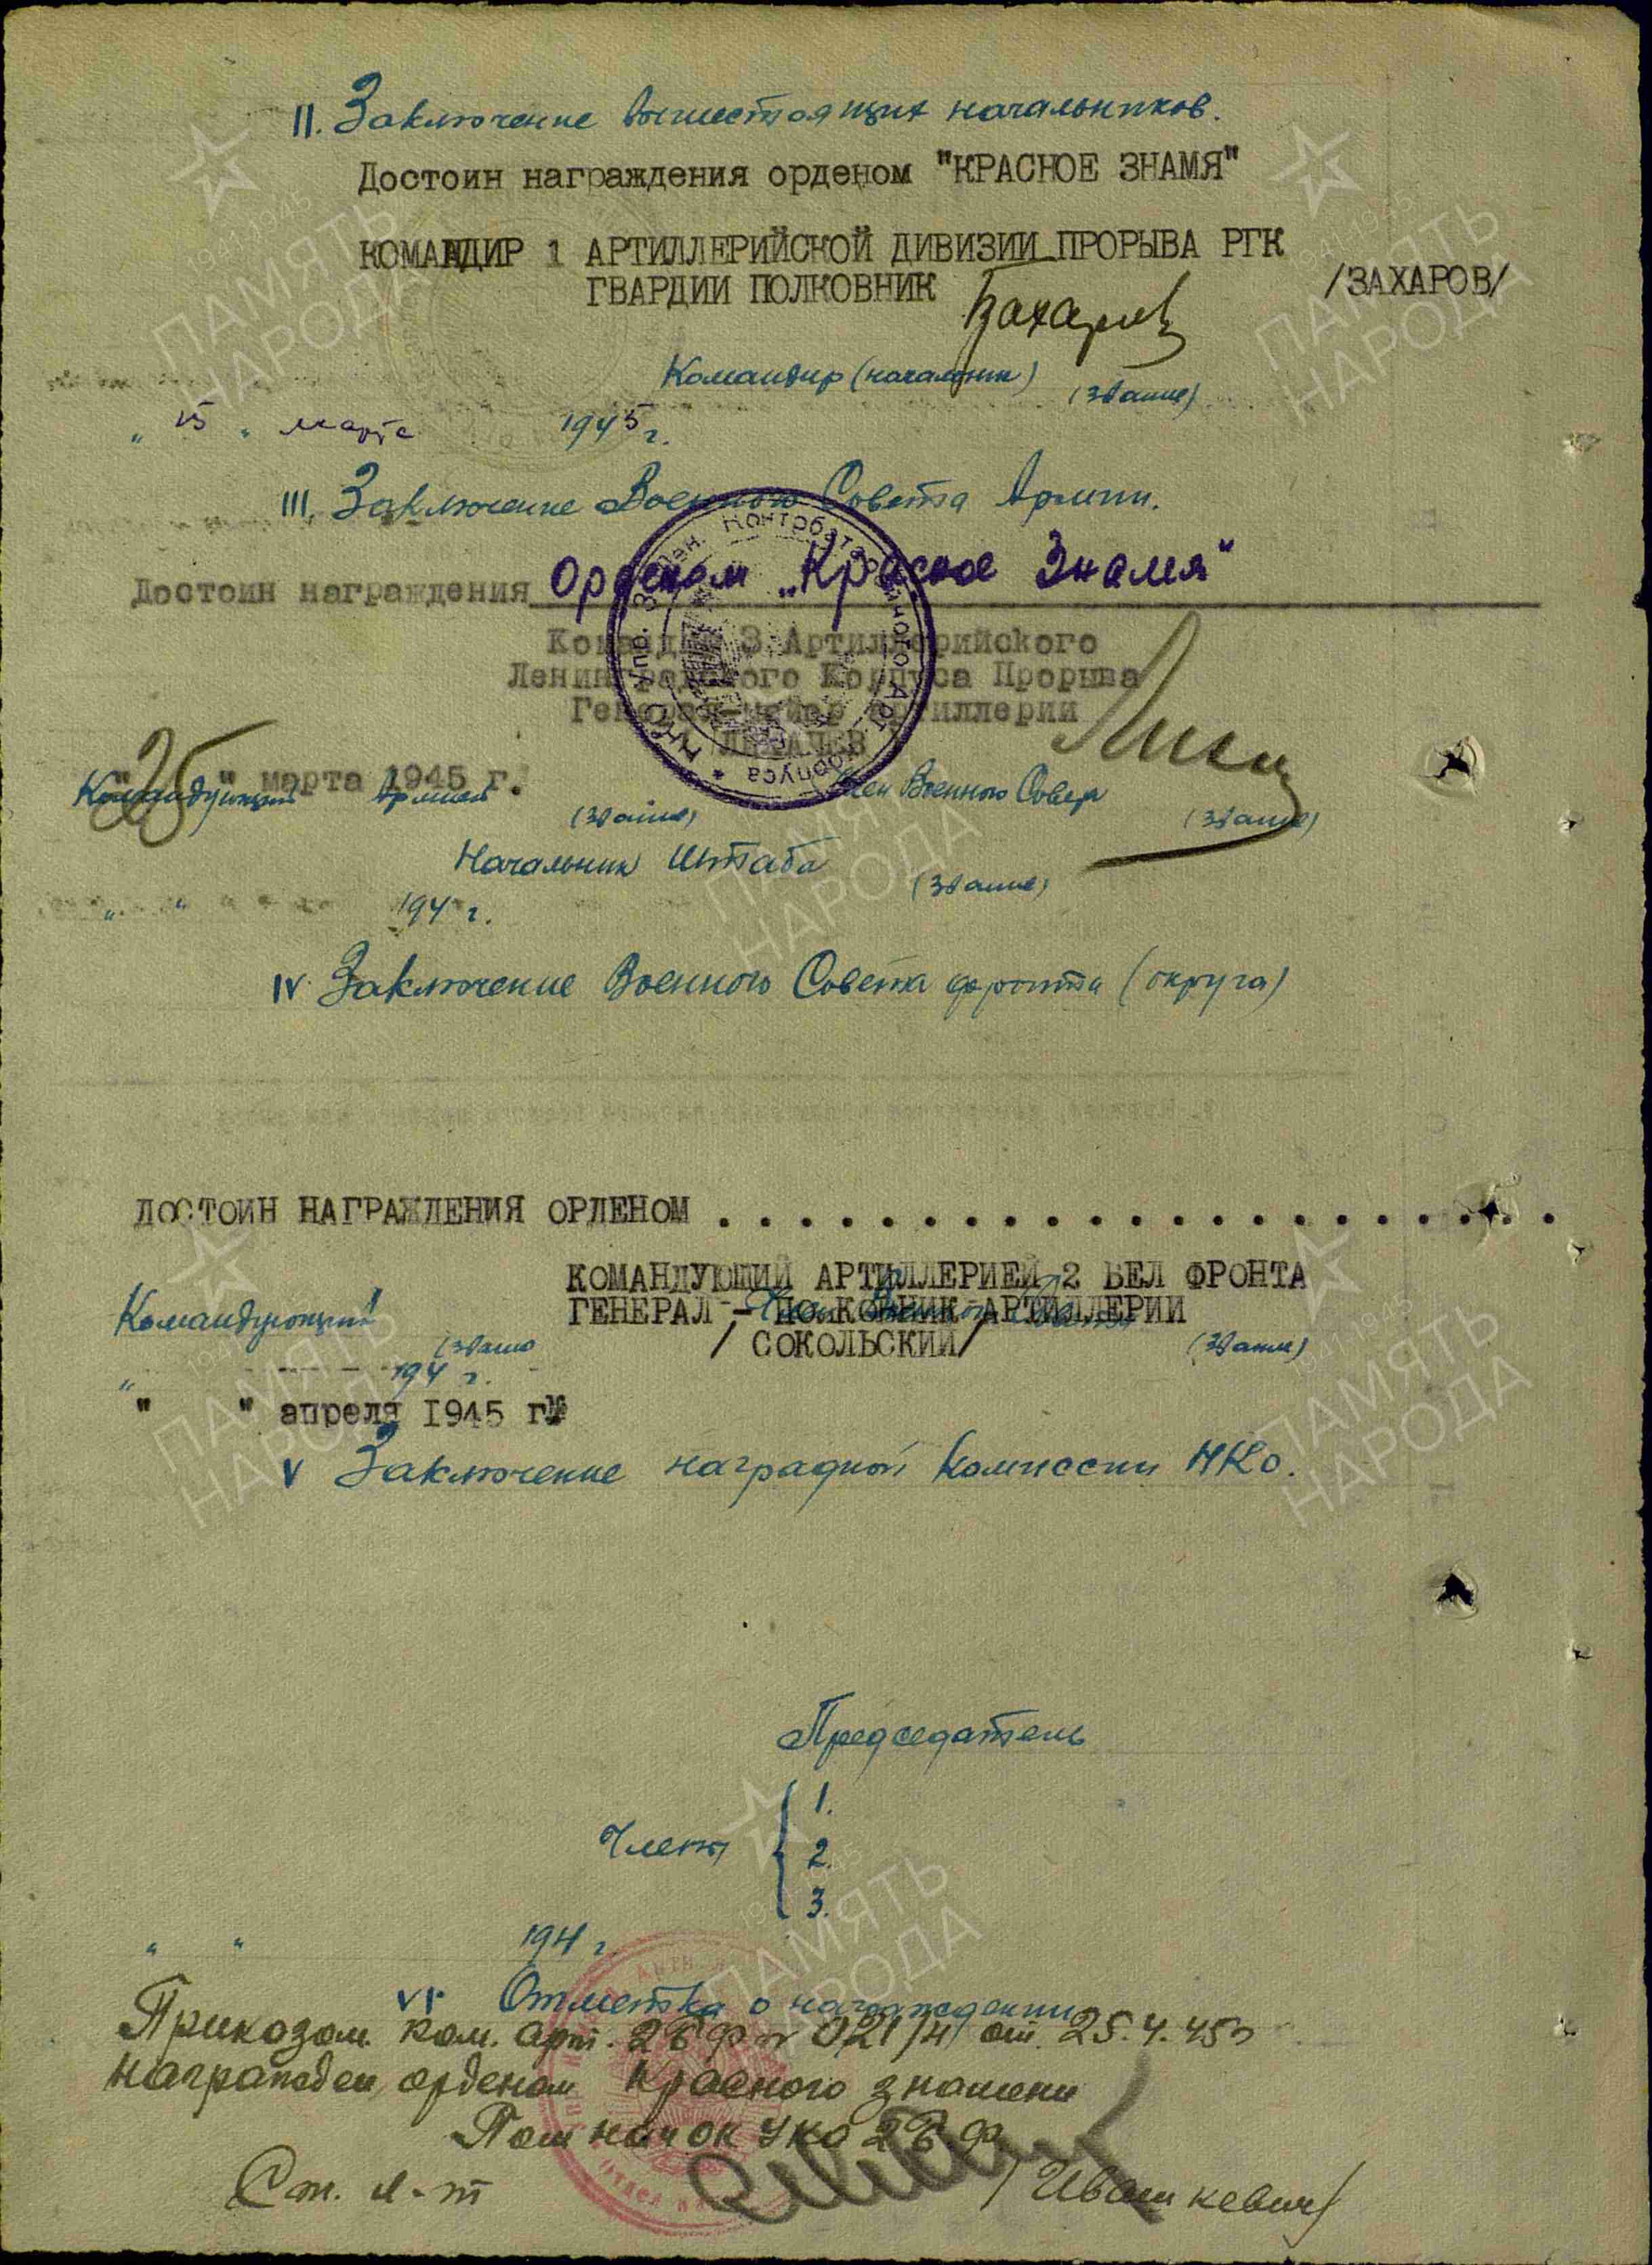 II. Заключение вышестоящих начальников.
Достоин награждения орденом "КРАСНОЕ ЗНАМЯ"
КОМАНДИР 1 АРТИЛЛЕРИЙСКОЙ ДИВИЗИИ ПРОРЫВА РГК
ГВАРДИИ ПОЛКОВНИК
/ЗАХАРОВ/
Захаров
Командир (начальник) (звание)
" 15 " марта 1945 г.
III. Заключение Военного Совета Армии.
Достоин награждения Орденом „Красное Знамя"
Командир 3 Артиллерийского
Ленинградского Корпуса Прорыва
Генерал-майор артиллерии
ЛИХАЧЕВ
"26" марта 1945 г.
Командующий Армией (звание) Член Военного Совета (звание)
Начальник Штаба (звание)
" " 194 г.
IV Заключение Военного Совета фронта (округа)
ДОСТОИН НАГРАЖДЕНИЯ ОРДЕНОМ . . . . . . . . . . . . . . . . . . . . .
КОМАНДУЮЩИЙ АРТИЛЛЕРИЕЙ 2 БЕЛ ФРОНТА
ГЕНЕРАЛ - ПОЛКОВНИК АРТИЛЛЕРИИ
/ СОКОЛЬСКИЙ/
Командующий (звание) Член Военного Совета (звание)
" 194 г.
" " апреля 1945 г.
V Заключение наградной комиссии НКО.
Председатель
Члены
1.
2.
3.
" " 194 г.
VI. Отметка о награждении
Приказом ком. арт. 2БФ № 021/н от 25.4.45г
награжден орденом Красного знамени
Пом нач ок УКА 2БФ
Ст. л-т /Ивашкевич/
ПАМЯТЬ
НАРОДА
1941-1945